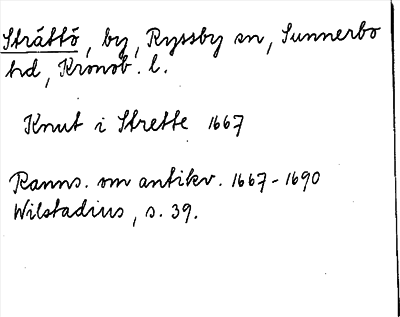 Stråttö, by, Ryssby sn, Sunnerbo
hd, Kronob. l.
Knut i Strette 1667
Ranns. om antikv. 1667-1690
Wilstadius, s. 39.